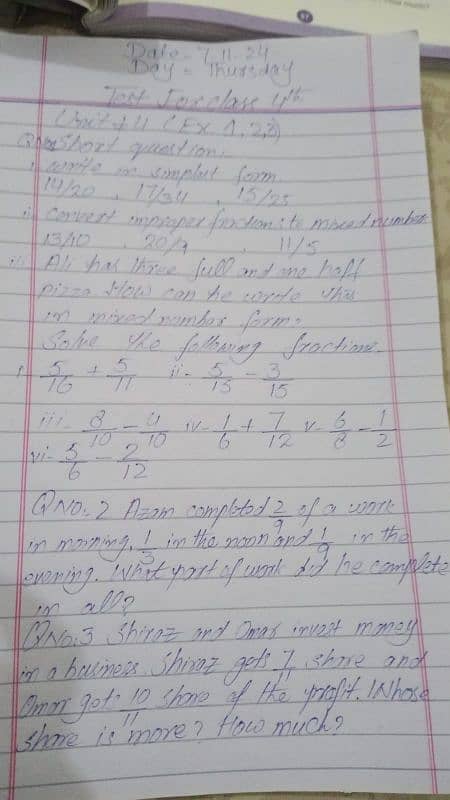 Date - 7.11.24
Day = Thursday
Test For class 4th
Unit # 4 (Ex 1,2,3)
Short question:-
i. write in simplest form.
14/20 , 17/34 , 15/25
ii. Convert improper fractions to mixed number
13/10 , 20/9 , 11/5
iii. Ali has three full and one half
pizza How can he write this
in mixed number form.
Solve the following fractions.
i 5/16 + 5/11 ii- 5/15 - 3/15
iii- 8/10 - 4/10 iv- 1/6 + 7/12 v- 6/8 - 1/2
vi- 5/6 - 2/12
QNo:-2 Azam completed 2/9 of a work
in morning, 1/3 in the noon and 1/9 in the
evening. What part of work did he complete
in all?
QNo:3 Shiraz and Omar invest money
in a business. Shiraz gets 7/11 share and
Omar gets 10/11 share of the profit. Whose
share is more? How much?